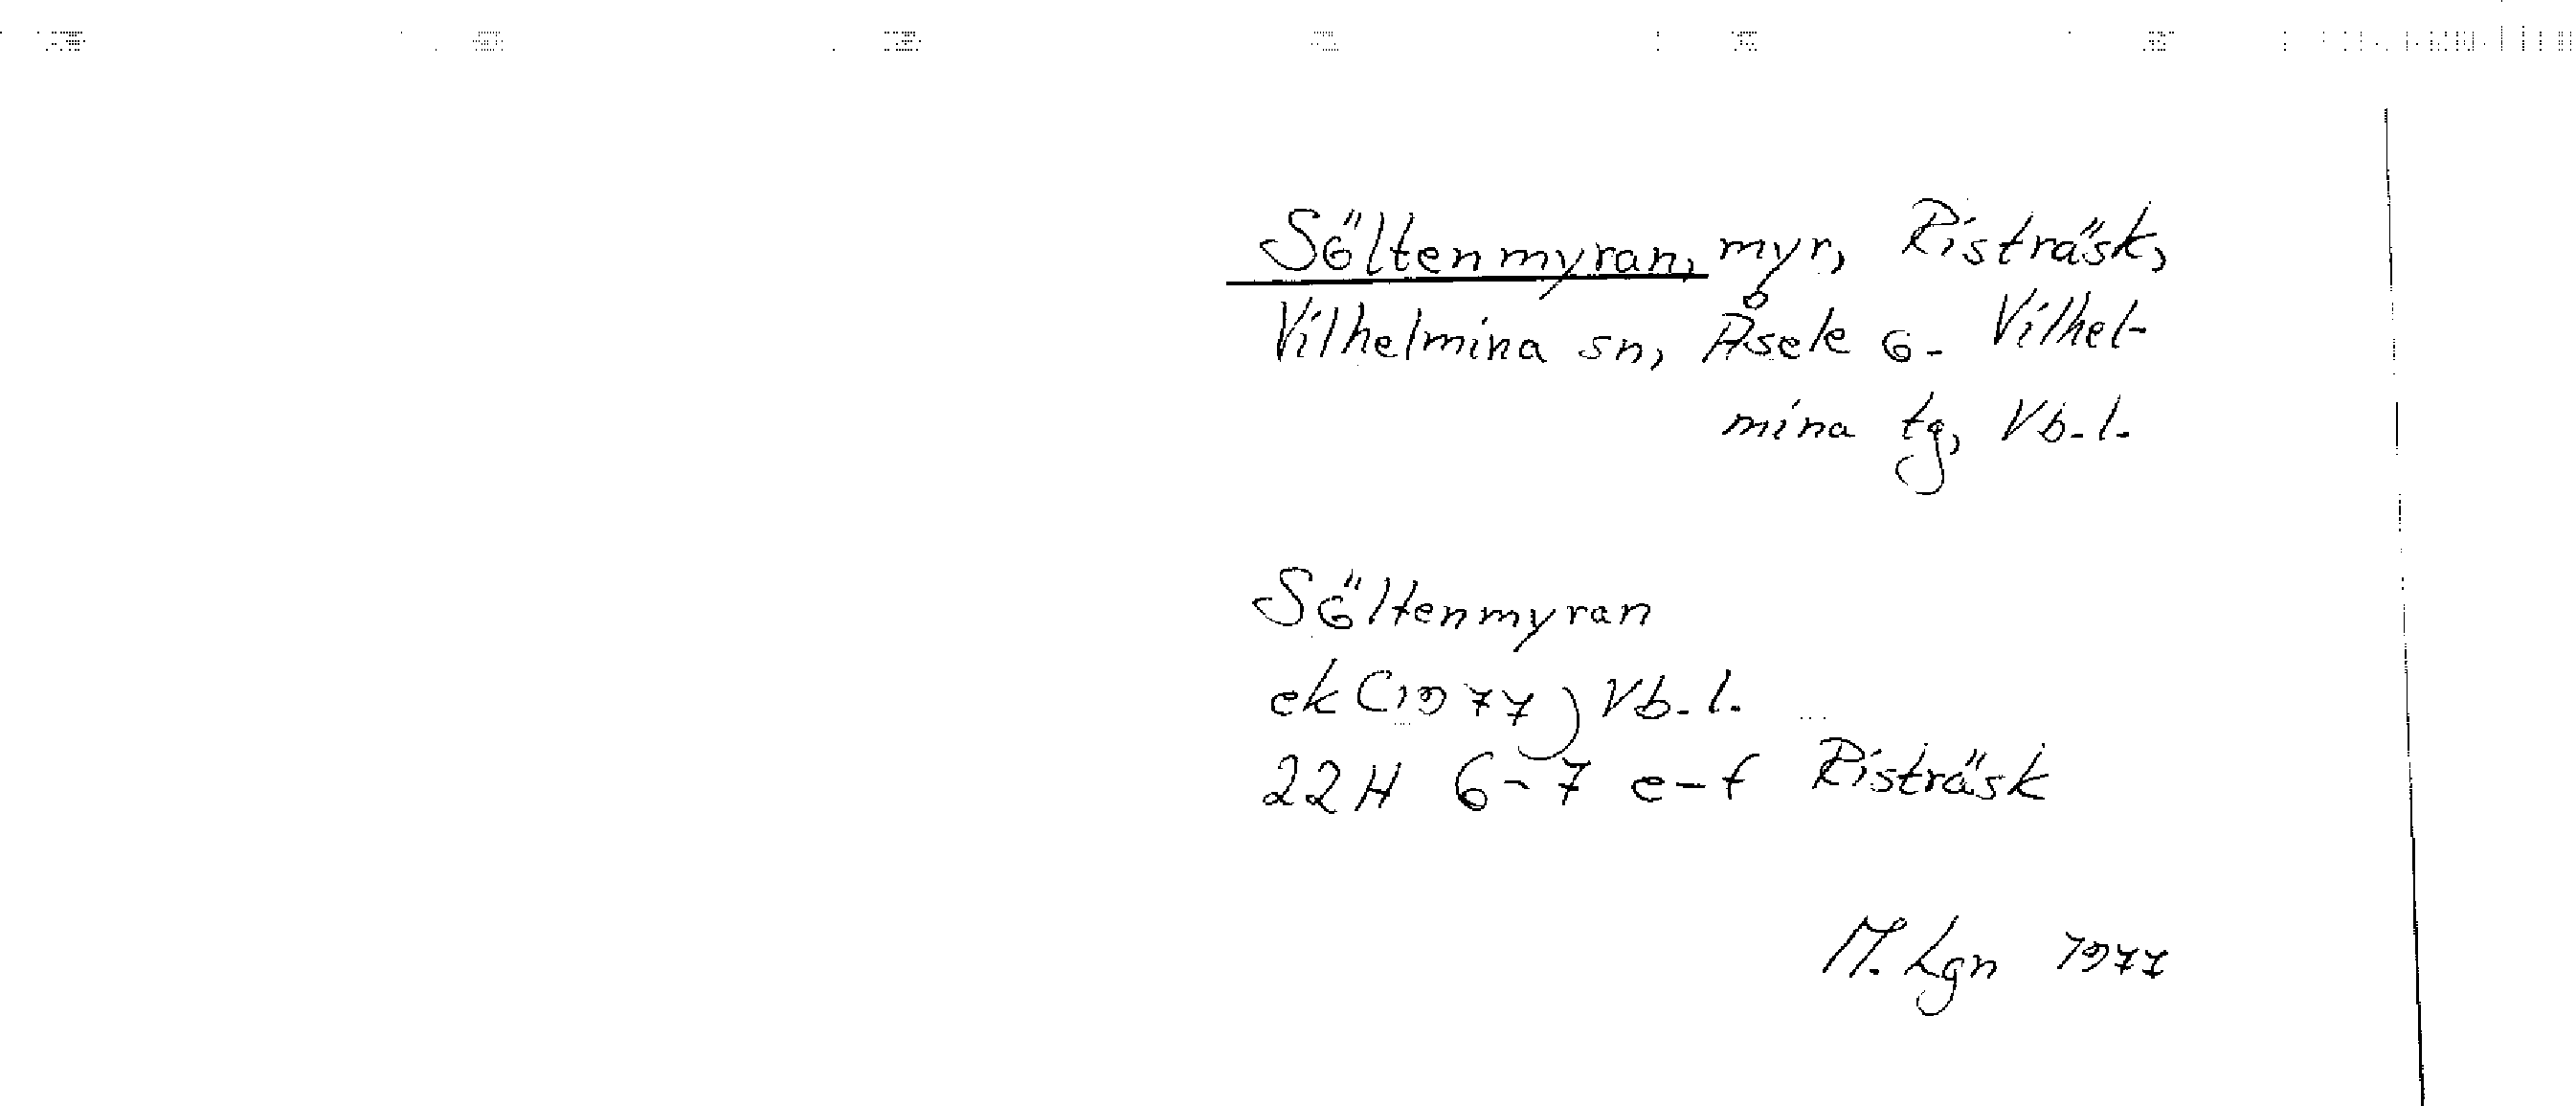 Söltenmyran, myr, Risträsk,
Vilhelmina sn, Åsele o. Vilhel-
mina tg, Vb. l.
Söltenmyran
ek (1977) Vb. l.
22H 6-7 e-f Risträsk
M. Lgn 1977